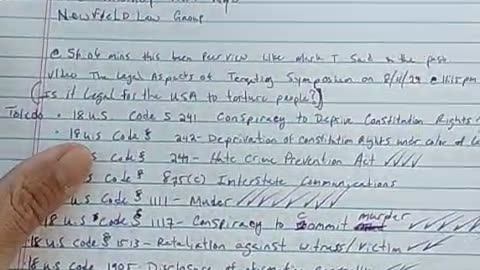 Newfield Law Group
@ 56:06 mins this been Peer view like Mark T Said in the past
video The Legal Aspects of Targeting Symposium on 8/11/29 @ 1:15pm
[Is it Legal for the USA to torture people?]
Toledo • 18 U.S Code § 241 Conspiracy to Deprive Constitution Rights
• 18 U.S Code § 242 - Deprivation of constitution Rights under color of
U.S Code § 249 - Hate Crime Prevention Act ✓✓✓✓
U.S Code § 875(c) Interstate Communications
U.S Code § 1111 - Murder ✓✓✓✓✓✓✓
18 U.S Code § 1117 - Conspiracy to Commit murder ✓✓✓✓✓
18 U.S code § 1513 - Retaliation against witness/victim ✓✓
18 U.S Code 1905 - Disclosure of